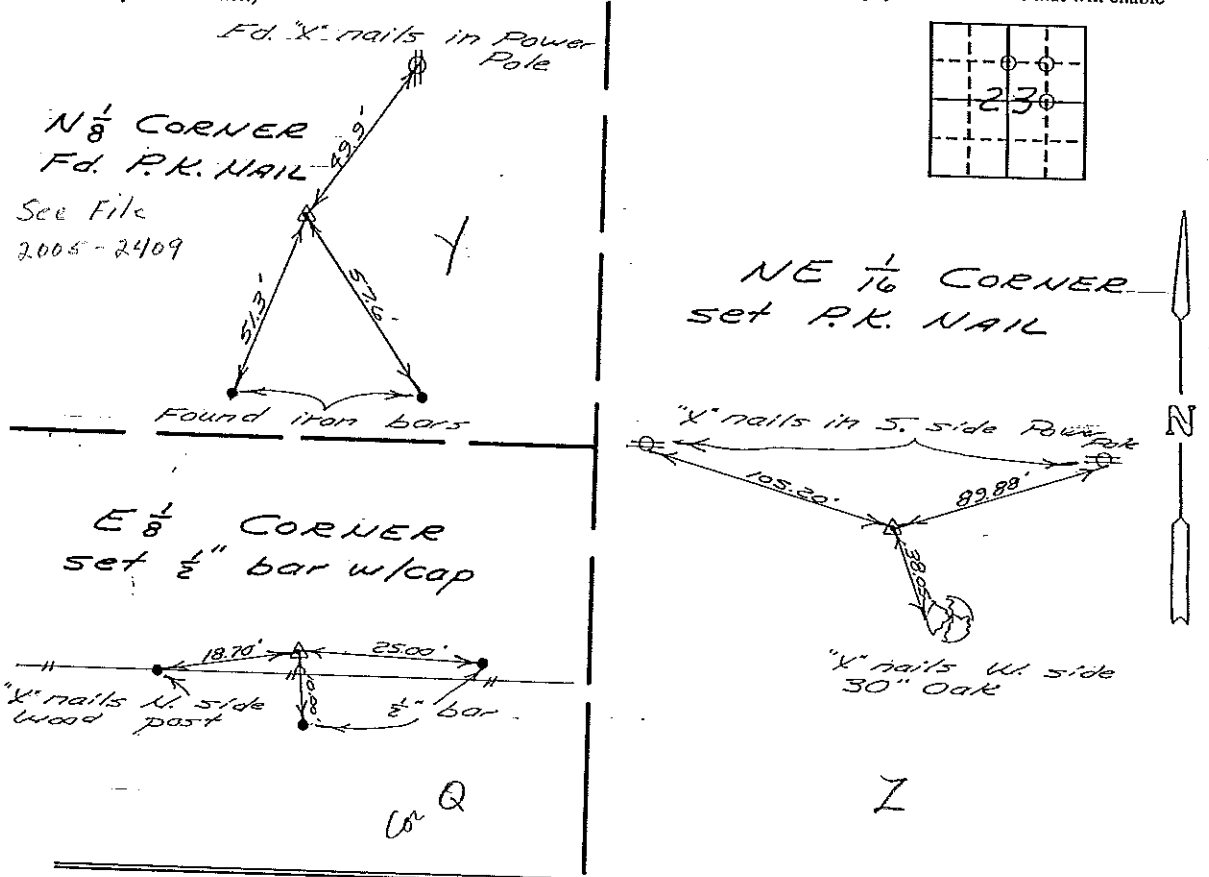 Fd. "X" nails in Power
Pole
N 1/8 CORNER
Fd. P.K. NAIL
See File
2005-2409
49.9'
51.3'
57.6'
Y
Found iron bars
E 1/8 CORNER
set 1/2" bar w/cap
18.70'
25.00'
"X" nails N. side
wood post
1/2" bar
Cor Q
that will enable
23
NE 1/16 CORNER
set P.K. NAIL
N
"X" nails in S. side Power
Pole
105.20'
89.88'
38.05'
"X" nails W. side
30" Oak
Z